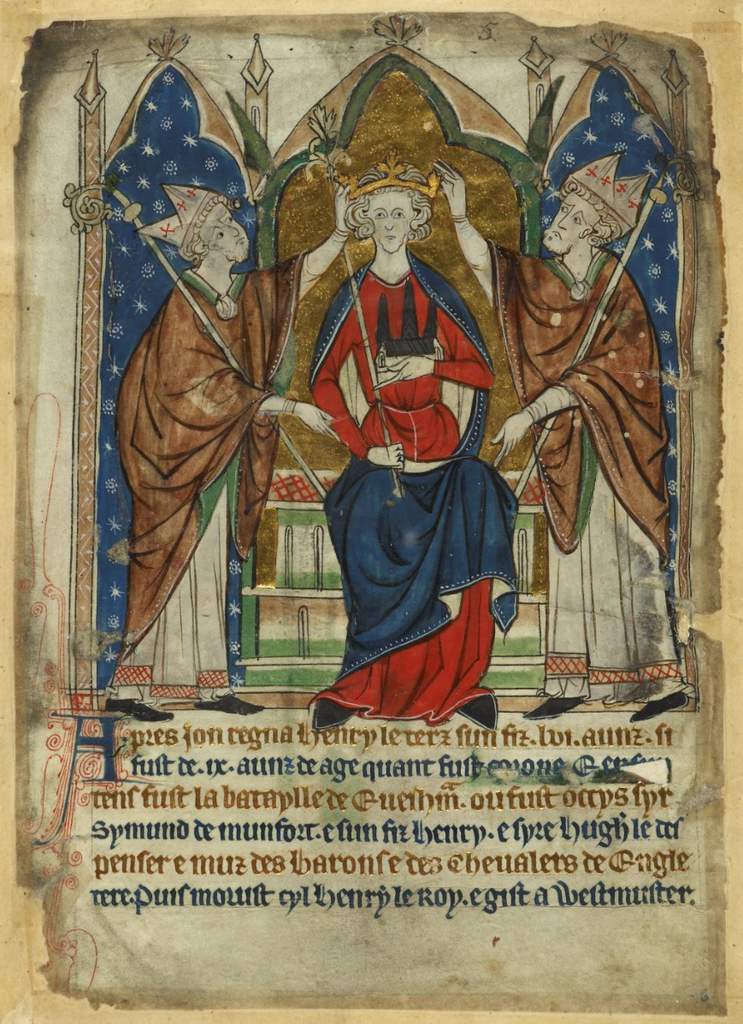 5
Apres Jon regna Henry le terz sun fiz . lvi . aunz . si
fust de . ix . aunz de age quant fust corone E
tens fust la bataylle de Euesħm . ou fust occys syr
Symund de munfort . e sun fiz henry . e syre hugħ le des
penser e muz des barons e des cheualers de Engle
tere . Puis morust cyl henry le Roy . e gist a Westmuster .
6